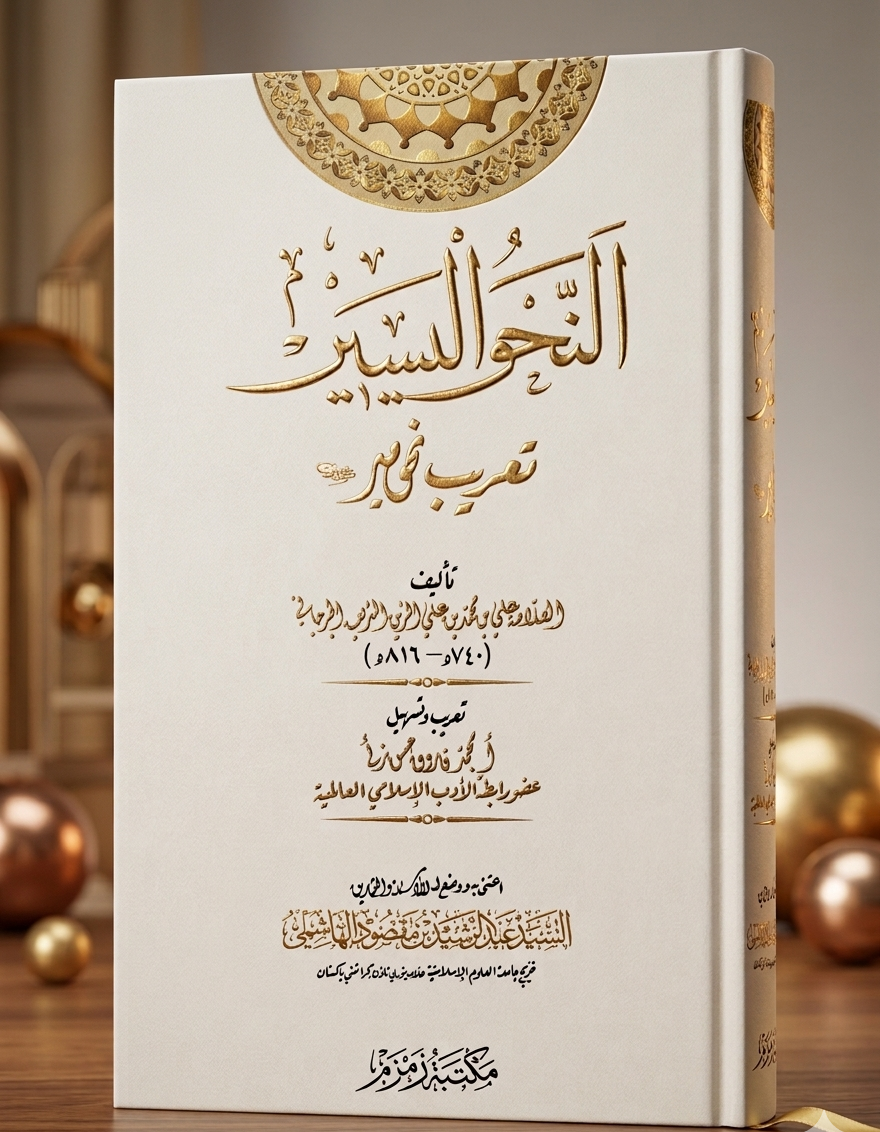 اَلنَّحْوُ الْيَسِيْرُ
تعريب نحو مير
تأليف
العلامة علي بن محمد بن علي الزين الشريف الجرجاني
(٧٤٠ھ – ٨١٦ھ)
تعريب وتسهيل
أ. محمد فاروق حسن زئي
عضو رابطة الأدب الإسلامي العالمية
اعتنى به ووضع له الأسئلة والتمارين
السَّيِّد عَبْدُ الرَّشِيْد بْن مَقْصُوْد الْهَاشِمِيّ
خريج جامعة العلوم الإسلامية علامه بنوري تاؤن كراتشي باكستان
مَكْتَبَةُ زَمْزَمْ